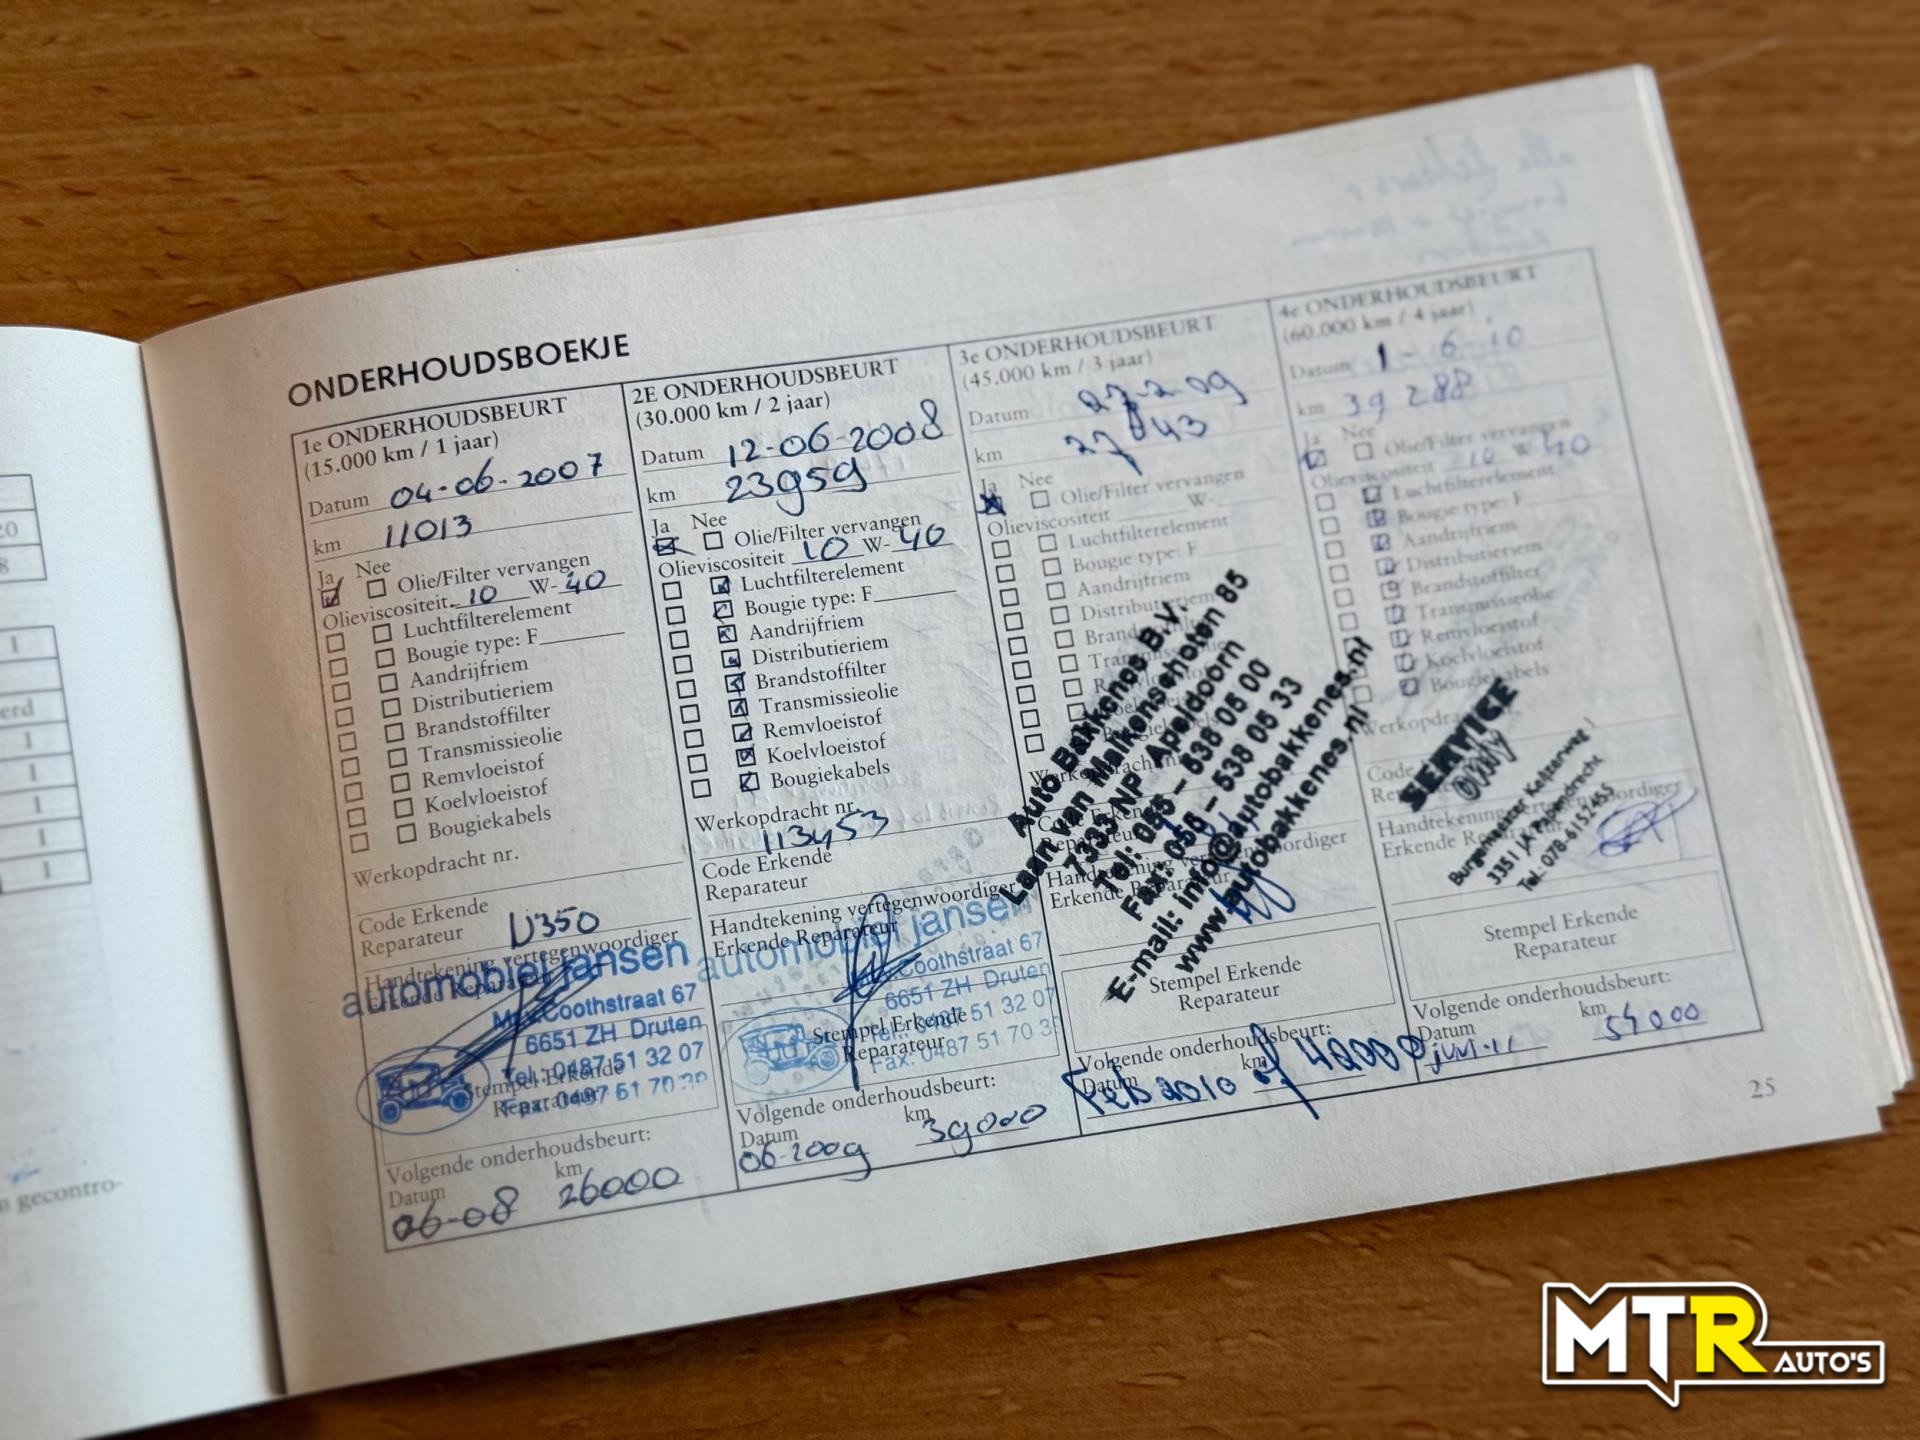 20
8
1
erd
1
1
1
1
1
n gecontro-
ONDERHOUDSBOEKJE
1e ONDERHOUDSBEURT
(15.000 km / 1 jaar)
Datum 04-06-2007
km 11013
Ja Nee
Olie/Filter vervangen
Olieviscositeit 10 W-40
Luchtfilterelement
Bougie type: F
Aandrijfriem
Distributieriem
Brandstoffilter
Transmissieolie
Remvloeistof
Koelvloeistof
Bougiekabels
Werkopdracht nr.
Code Erkende
Reparateur U350
Handtekening vertegenwoordiger
Erkende Reparateur
automobiel jansen
Coothstraat 67
6651 ZH Druten
Tel.: 0487 51 32 07
Fax: 0487 51 70
Stempel Erkende
Reparateur
Volgende onderhoudsbeurt:
Datum km
06-08 26000
2E ONDERHOUDSBEURT
(30.000 km / 2 jaar)
Datum 12-06-2008
km 23959
Ja Nee
Olie/Filter vervangen
Olieviscositeit 10 W-40
Luchtfilterelement
Bougie type: F
Aandrijfriem
Distributieriem
Brandstoffilter
Transmissieolie
Remvloeistof
Koelvloeistof
Bougiekabels
Werkopdracht nr.
113453
Code Erkende
Reparateur
Handtekening vertegenwoordiger
Erkende Reparateur
automobiel jansen
Coothstraat 67
6651 ZH Druten
Tel.: 0487 51 32 07
Fax: 0487 51 70 3
Stempel Erkende
Reparateur
Volgende onderhoudsbeurt:
Datum km
06-2009 39000
3e ONDERHOUDSBEURT
(45.000 km / 3 jaar)
Datum 27-2-09
km 27 843
Ja Nee
Olie/Filter vervangen
Olieviscositeit W-
Luchtfilterelement
Bougie type: F
Aandrijfriem
Distributieriem
Auto Bakkenes B.V.
Laan van Malkenschoten 85
7333 NP Apeldoorn
Tel: 055 - 538 05 00
Fax: 055 - 538 05 33
E-mail: info@autobakkenes.nl
www.autobakkenes.nl
Werkopdracht nr.
Stempel Erkende
Reparateur
Volgende onderhoudsbeurt:
Datum km
Feb 2010 of 42000
4e ONDERHOUDSBEURT
(60.000 km / 4 jaar)
Datum 1-6-10
km 39 288
Ja Nee
Olie/Filter vervangen
Olieviscositeit 10 W 40
Luchtfilterelement
Bougie type: F
Aandrijfriem
Distributieriem
Brandstoffilter
Transmissieolie
Remvloeistof
Koelvloeistof
Bougiekabels
Werkopdracht
SERVICE
Only
Burgemeester Keizerweg 1
3351 LA Papendrecht
Tel. 078-6152455
Handtekening vertegenwoordiger
Erkende Reparateur
Stempel Erkende
Reparateur
Volgende onderhoudsbeurt:
Datum km
juni-11 54000
25
MTR AUTO'S